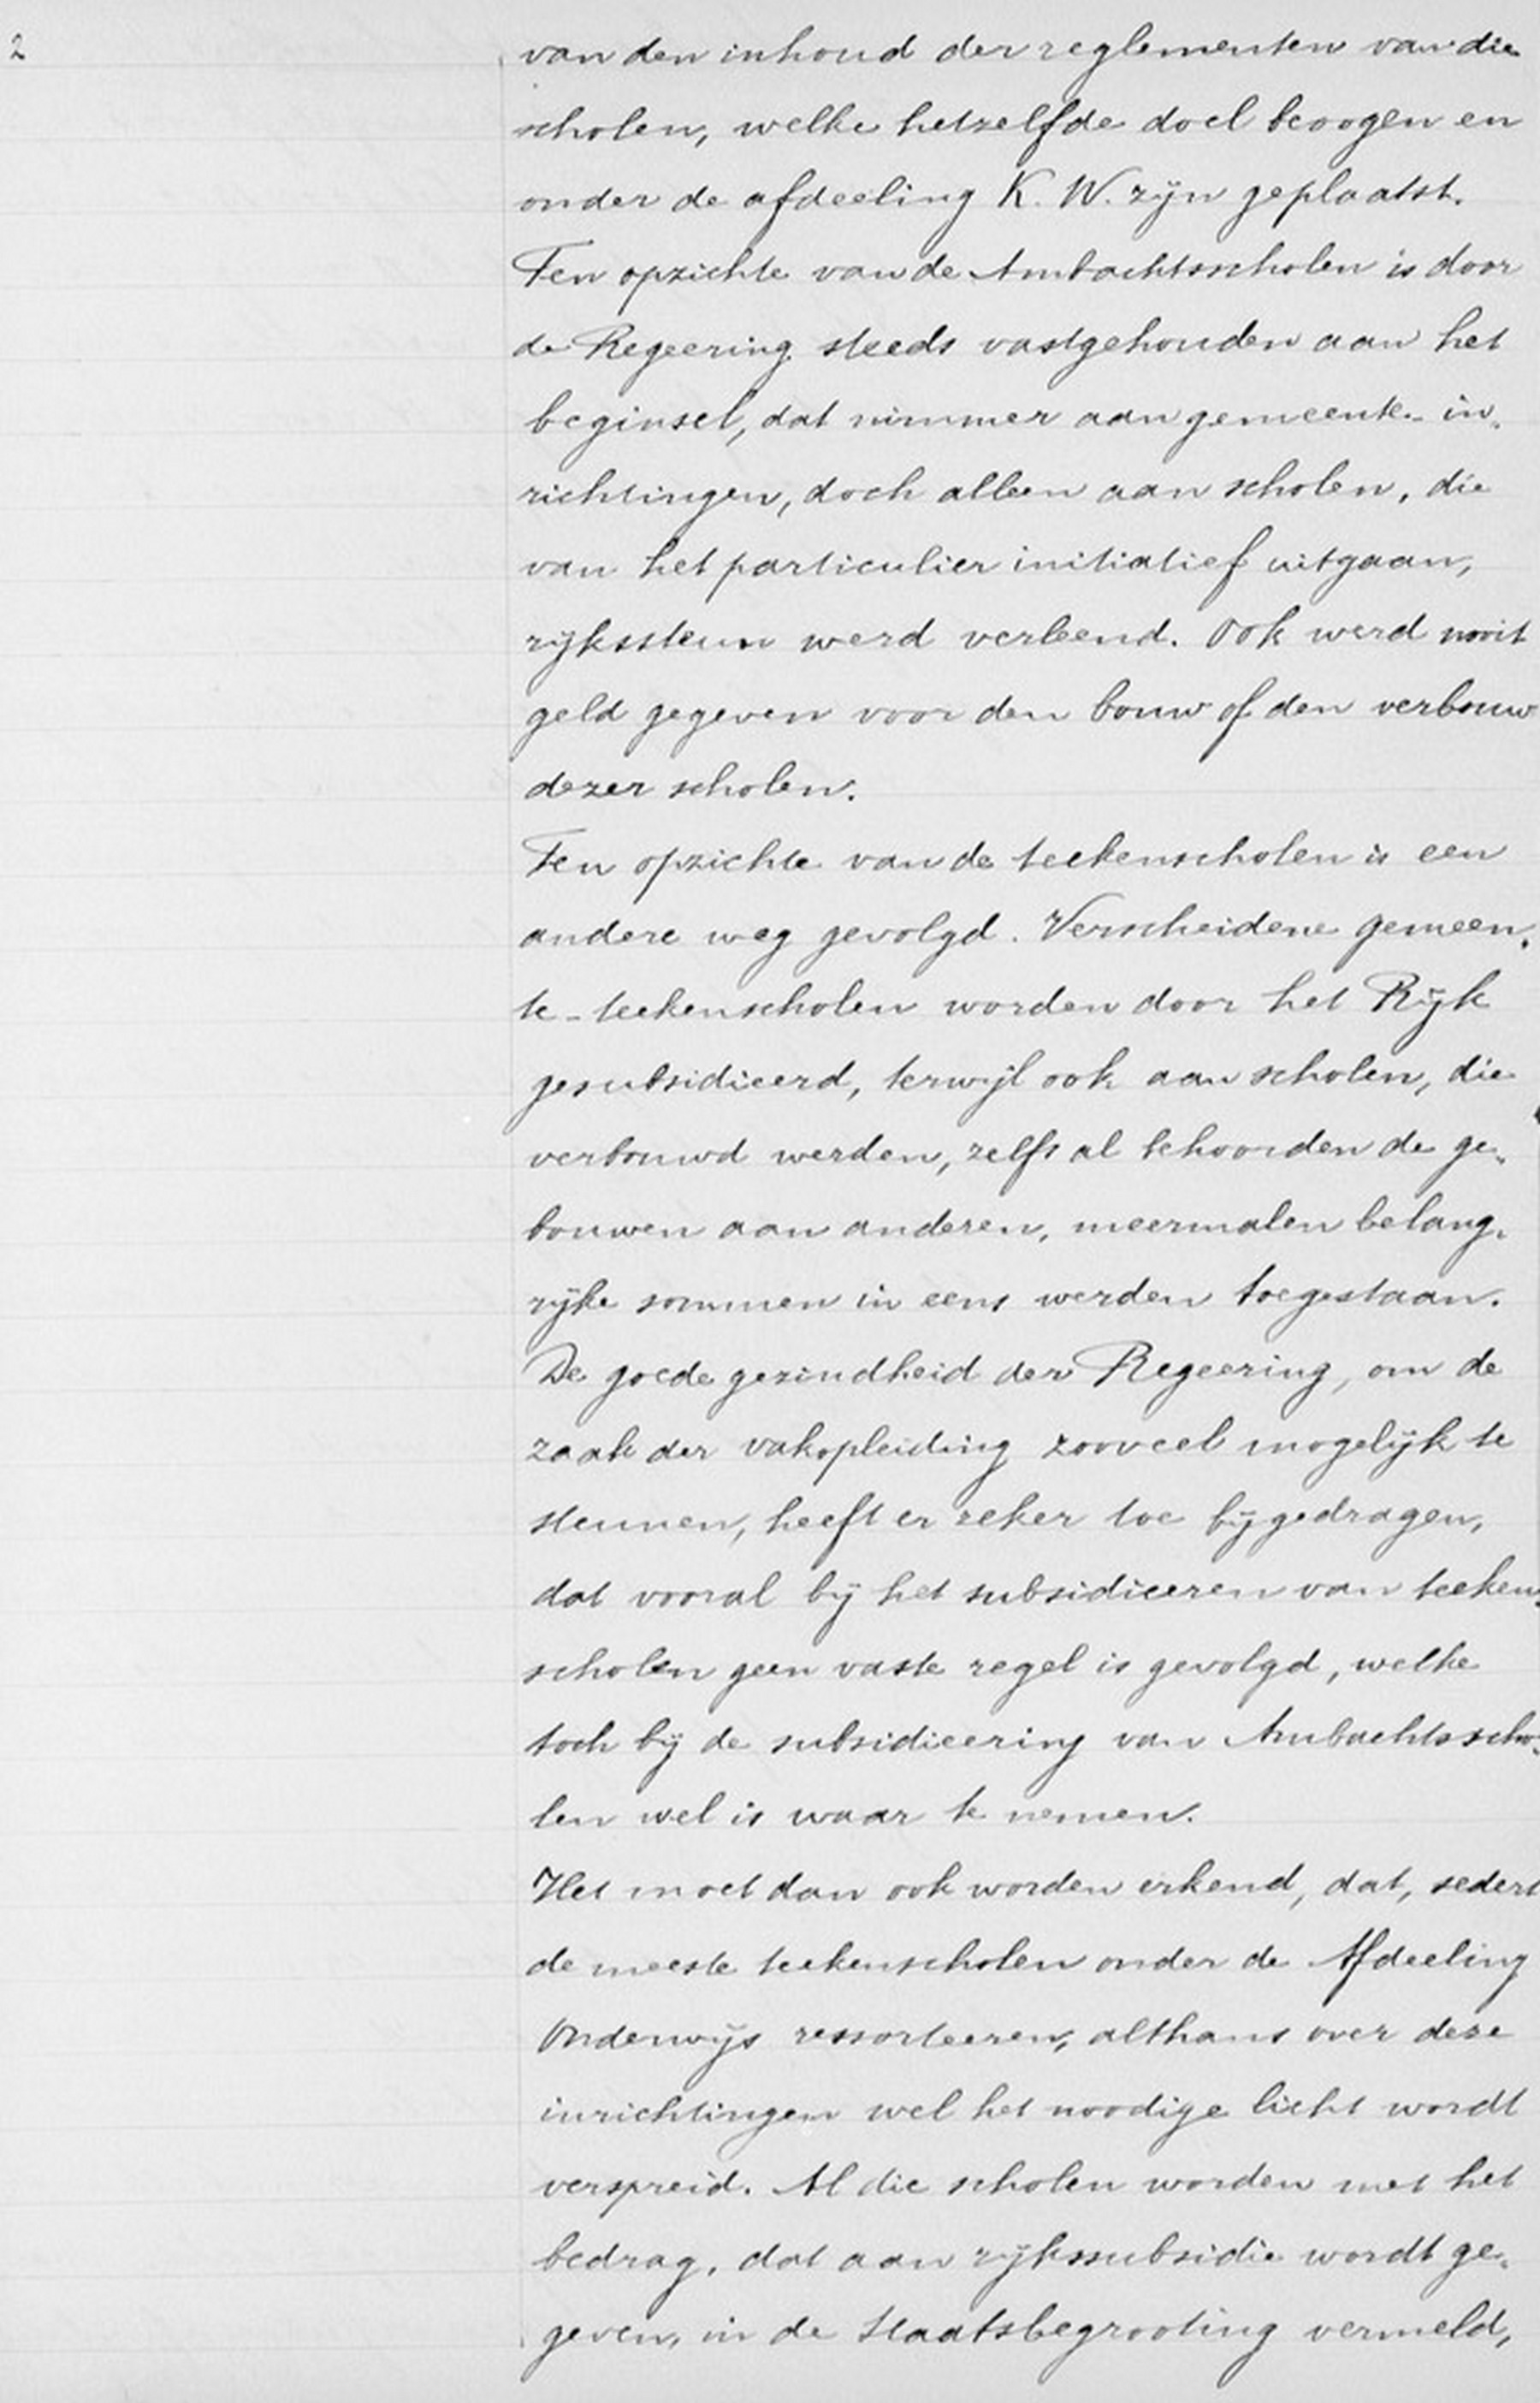 2
van den inhoud der reglementen van die
scholen, welke hetzelfde doel beoogen en
onder de afdeeling K. W. zijn geplaatst.
Ten opzichte van de Ambachtsscholen is door
de Regeering steeds vastgehouden aan het
beginsel, dat nimmer aan gemeente-in-
richtingen, doch alleen aan scholen, die
van het particulier initiatief uitgaan,
rijkssteun werd verleend. Ook werd nooit
geld gegeven voor den bouw of den verbouw
dezer scholen.
Ten opzichte van de teekenscholen is een
andere weg gevolgd. Verscheidene gemeen-
te-teekenscholen worden door het Rijk
gesubsidieerd, terwijl ook aan scholen, die
verbouwd werden, zelfs al behoorden de ge-
bouwen aan anderen, meermalen belang-
rijke sommen in eens werden toegestaan.
De goede gezindheid der Regeering, om de
zaak der vakopleiding zooveel mogelijk te
steunen, heeft er zeker toe bijgedragen,
dat vooral bij het subsidieeren van teeken-
scholen geen vaste regel is gevolgd, welke
toch bij de subsidieering van Ambachtsscho-
len wel is waar te nemen.
Het moet dan ook worden erkend, dat, sedert
de meeste teekenscholen onder de Afdeeling
Onderwijs ressorteeren, althans over deze
inrichtingen wel het noodige licht wordt
verspreid. Al die scholen worden met het
bedrag, dat aan rijkssubsidie wordt ge-
geven, in de Staatsbegrooting vermeld,